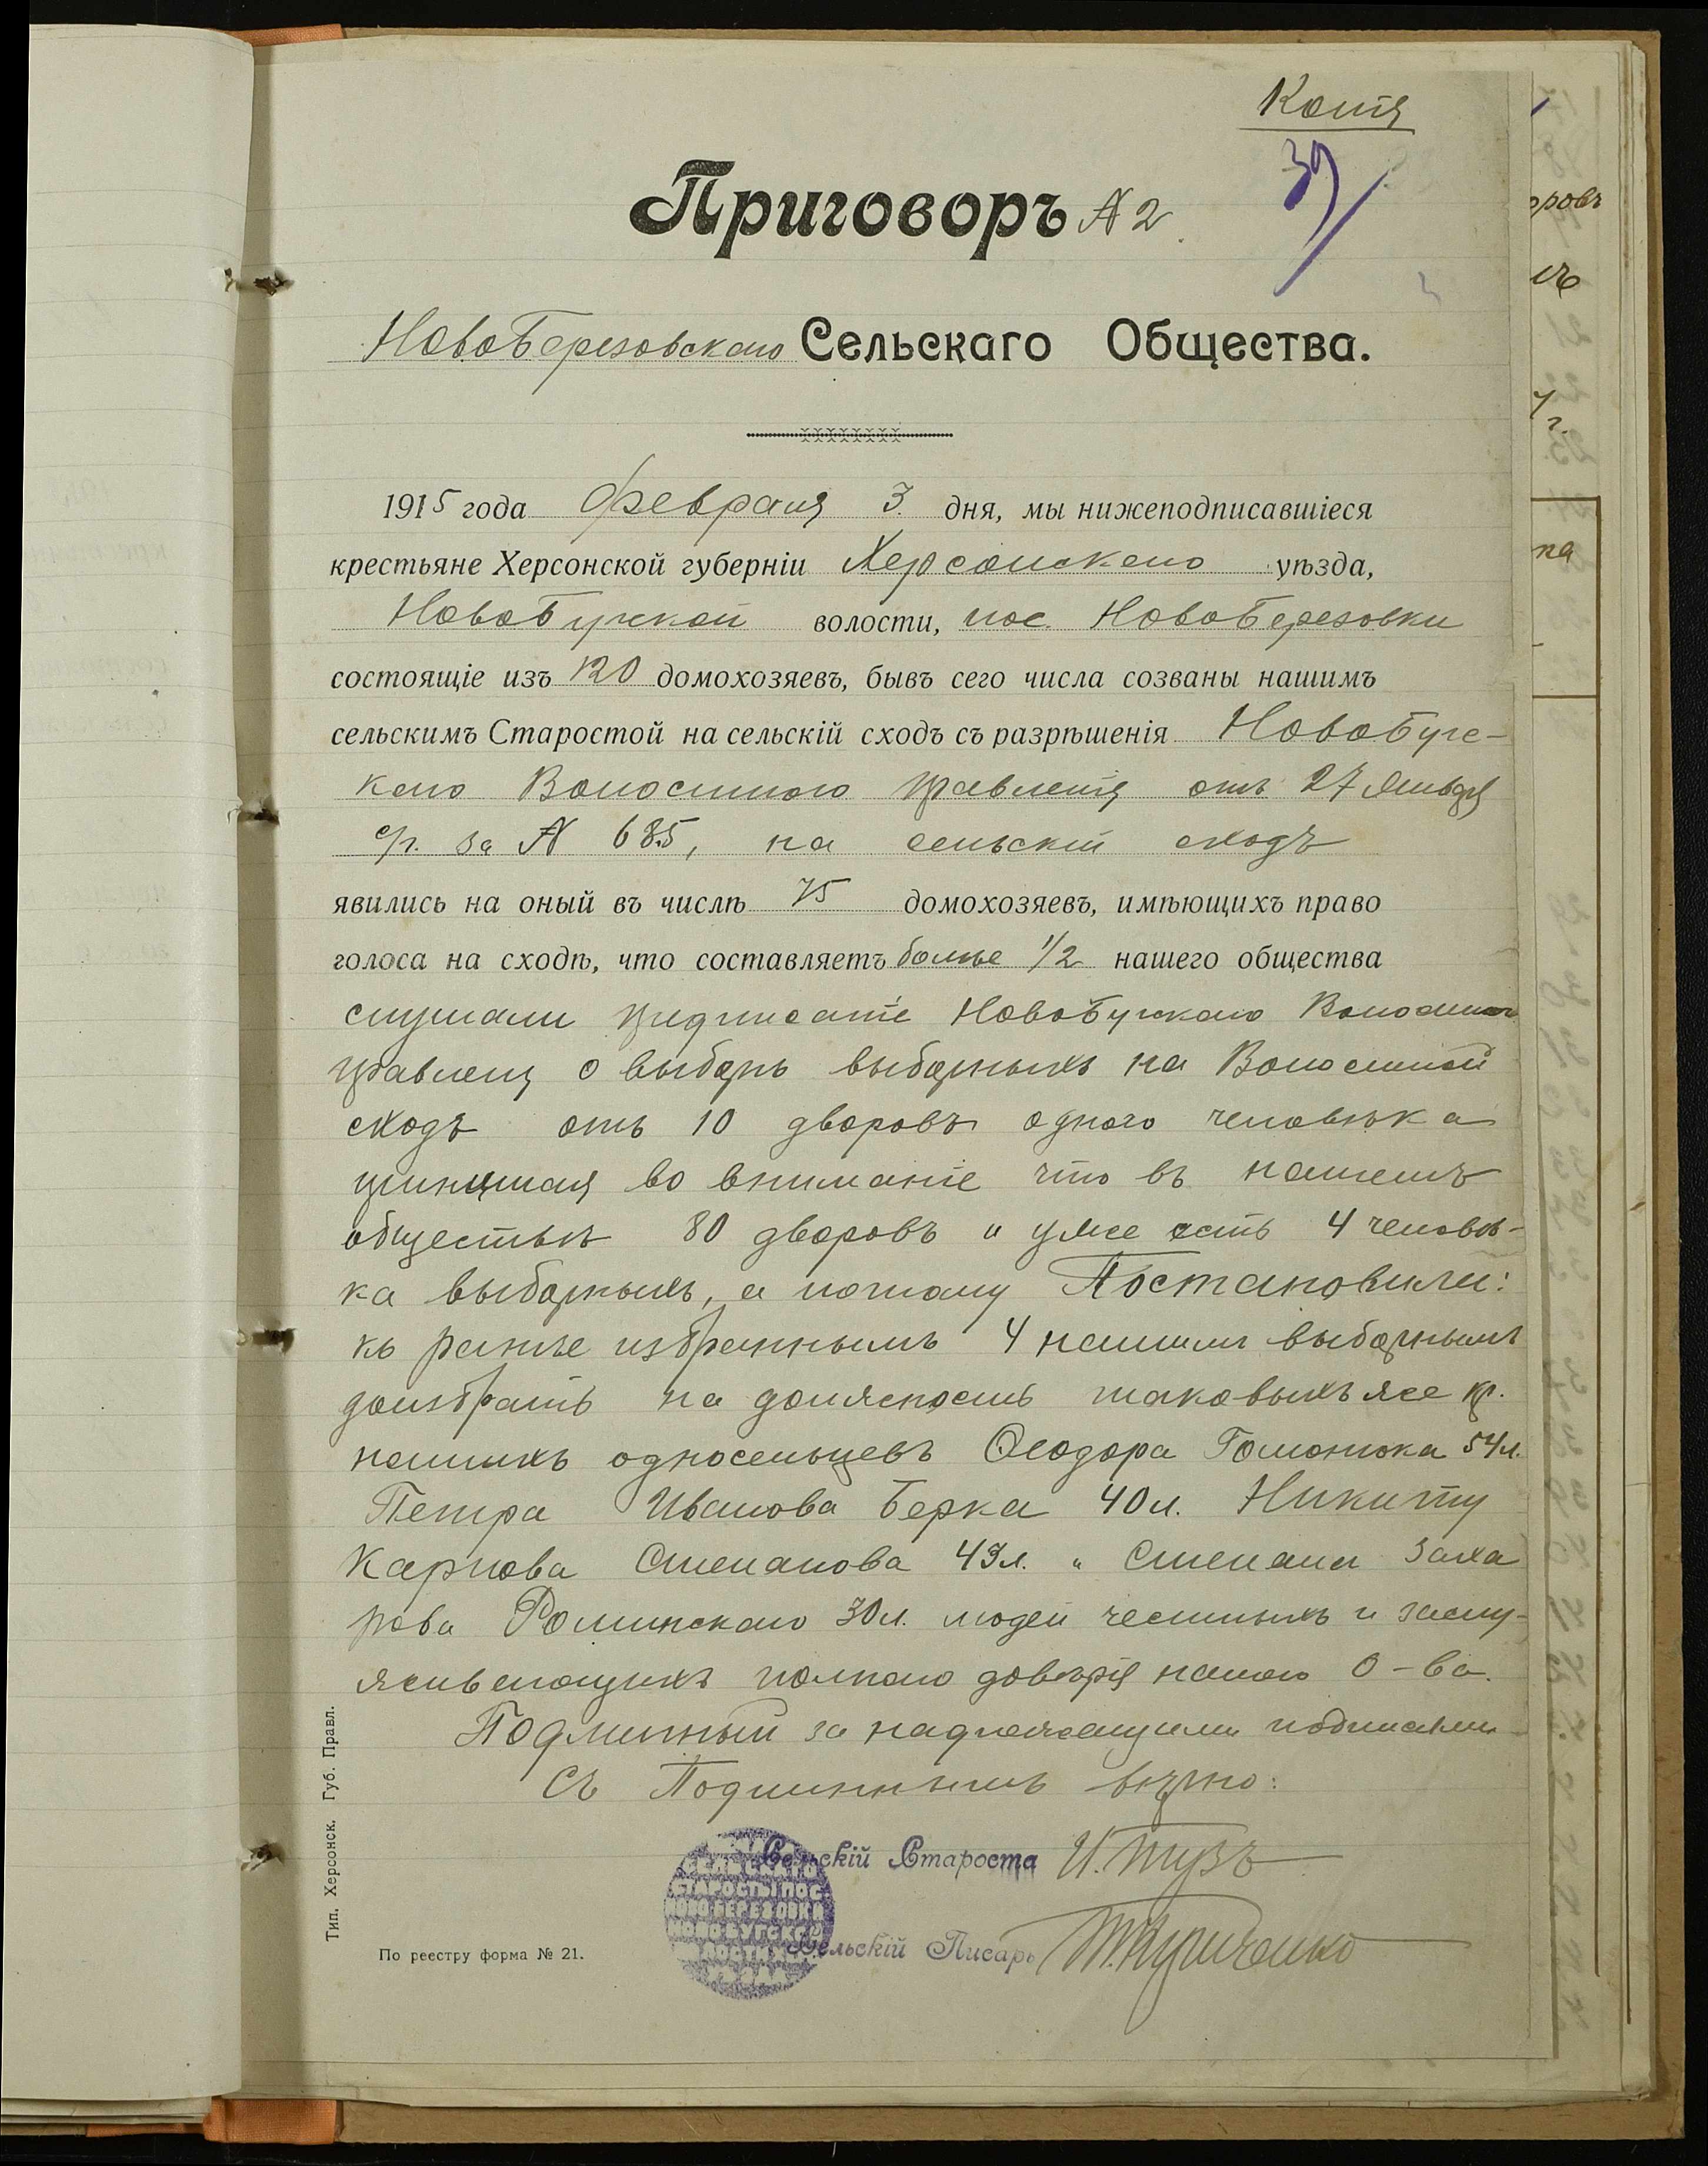 Копія
39
Приговоръ № 2
НовоБерезовскаго Сельскаго Общества.
1915 года Февраля 3 дня, мы нижеподписавшіеся
крестьяне Херсонской губерніи Херсонскаго уѣзда,
НовоБугской волости, пос. НовоБерезовки
состоящіе изъ 120 домохозяевъ, бывъ сего числа созваны нашимъ
сельскимъ Старостой на сельскій сходъ съ разрѣшенія НовоБугс-
каго Волостного Правленія отъ 27 Января
с/г. за № 685, на сельскій сходъ
явились на оный въ числѣ 75 домохозяевъ, имѣющихъ право
голоса на сходѣ, что составляетъ болѣе 1/2 нашего общества
слушали предписаніе НовоБугскаго Волостного
Правленія о выборѣ выборныхъ на Волостной
сходъ отъ 10 дворовъ одного человѣка
принимая во вниманіе что въ нашемъ
обществѣ 80 дворовъ и уже есть 4 человѣ-
ка выборныхъ, а потому Постановили:
къ ранѣе избраннымъ 4 нашимъ выборнымъ
доизбрать на должность таковыхъ же кр.
нашихъ односельцевъ Ѳеодора Гоманюка 54 л.
Петра Иванова Берка 40 л. Никиту
Карпова Степанова 43 л. и Степана Заха
рова Роминскаго 30 л. людей честныхъ и заслу-
живающихъ полнаго довѣрія нашего О-ва.
Подлинный за надлежащими подписями
Съ Подлиннымъ вѣрно:
Сельскій Староста И. Тузъ
СЕЛЬСКАГО
СТАРОСТЫ ПОС
НОВО БЕРЕЗОВКИ
НОВО-БУГСКОЙ
ВОЛОСТИ
Сельскій Писарь
По реестру форма № 21.
Тип. Херсонск. Губ. Правл.
оровъ
г.
ка